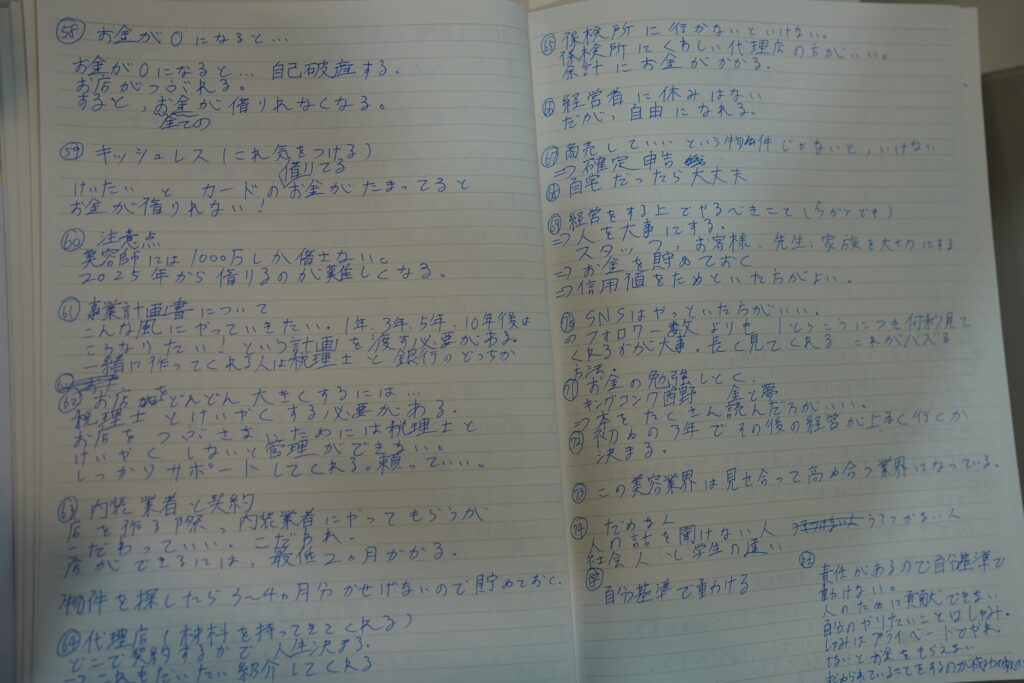 58 お金が0になると…
お金が0になると… 自己破産する。
お店がつぶれる。
すると、お金が借りれなくなる。
全ての
59 キッシュレス（これ気をつける）
借りてる
けいたい と カードのお金がたまってると
お金が借りれない！
60 注意点
美容師には1000万しか借さない。
2025年から借りるのが難しくなる。
61 事業計画書について
こんな風にやっていきたい。1年、3年、5年、10年後は
こうなりたい！という計画を渡す必要がある。
一緒に作ってくれる人は税理士と銀行のどっちか
62 お店をどんどん大きくするには…
税理士とけいやくする必要がある。
お店をつぶさないためには税理士と
けいやくしないと管理ができない。
しっかりサポートしてくれる。頼っていい。
63 内装業者と契約
店を作る際、内装業者にやってもらうが
こだわっていい。こだわれ。
店ができるには、最低2ヵ月かかる。
物件を探したら3〜4ヵ月分かせげないので貯めておく。
64 代理店（材料を持ってきてくれる）
どこで契約するかで、人生決まる。
→これもだいたい紹介してくれる
65 保検所に行かないといけない。
保検所にくわしい代理店の方がいい。
余計にお金がかかる。
66 経営者に休みはない
だが、自由になれる。
67 商売していいという物件じゃないと、いけない
⇒確定申告
68 自宅だったら大丈夫
69 経営をする上でやるべきこと（今からです）
⇒人を大事にする。
スタッフ、お客様、先生、家族を大切にする
⇒お金を貯めておく
⇒信用値をためといた方がよい。
70 SNSはやっといた方がいい。
⇒フォロワー数よりも1とうこうにつき何秒見て
くれるかが大事。長く見てくれる これがバズる
方法。
71 お金の勉強しとく。
キングコング西野 金と夢
⇒本をたくさん読んだ方がいい。
72 初めの3年でその後の経営が上手く行くか
決まる。
73 この美容業界は見せ合って高め合う業界になっている。
74 だめな人
人の話を聞けない人 うてつかない人
社会人と学生の違い
学 自分基準で動ける
社 責任があるので自分基準で
動けない。
人のために貢献できない
自分のやりたいことはしゅみ。
しゅみはプライベートでやれ。
でないとお金をもらえない